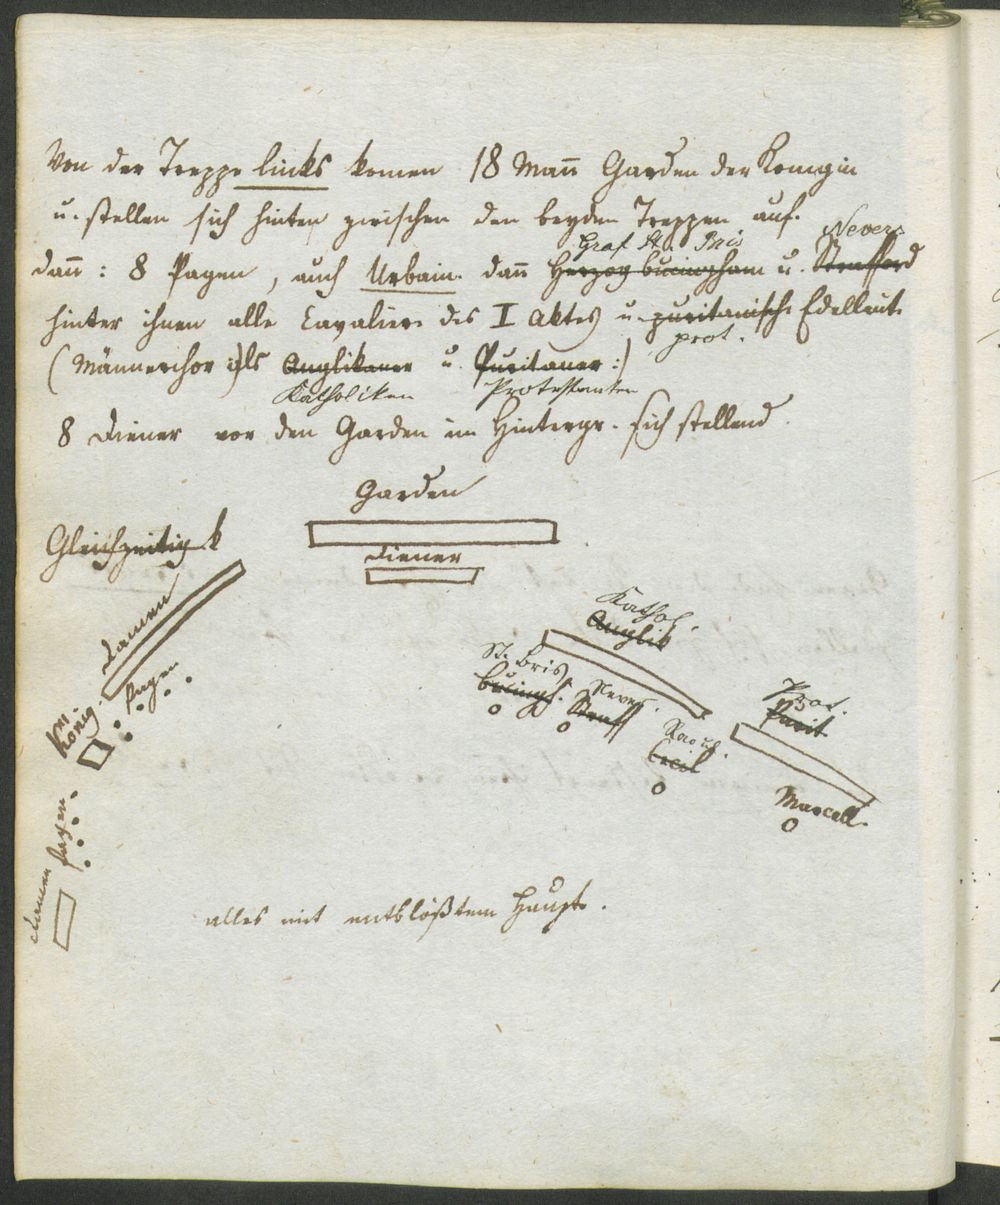 Von der Treppe links komen 18 Man̄ Garden der Königin
u. stellen sich hinten zwischen den beyden Treppen auf.
Graf St. Bris Nevers
dan̄ : 8 Pagen, auch Urbain. dan̄ Herzog Bucingham u. Strafford
hinter ihnen alle Cavaliere des I Aktes u. puritanische Edelleute
prot.
(Männerchor :) als Anglikaner u. Puritaner :)
Katholiken Protestanten
8 Diener vor den Garden im Hintergr. sich stellend.
Garden
Gleichzeitig
Diener
Damen
Kathol.
Anglik
St. Bris
Bucingh.
Nevers.
Straff
Pagen
Prot.
Purit
Königin
Raoul.
Cecil
Marcell
Pagen
Damen
alles mit entblößtem Haupte.